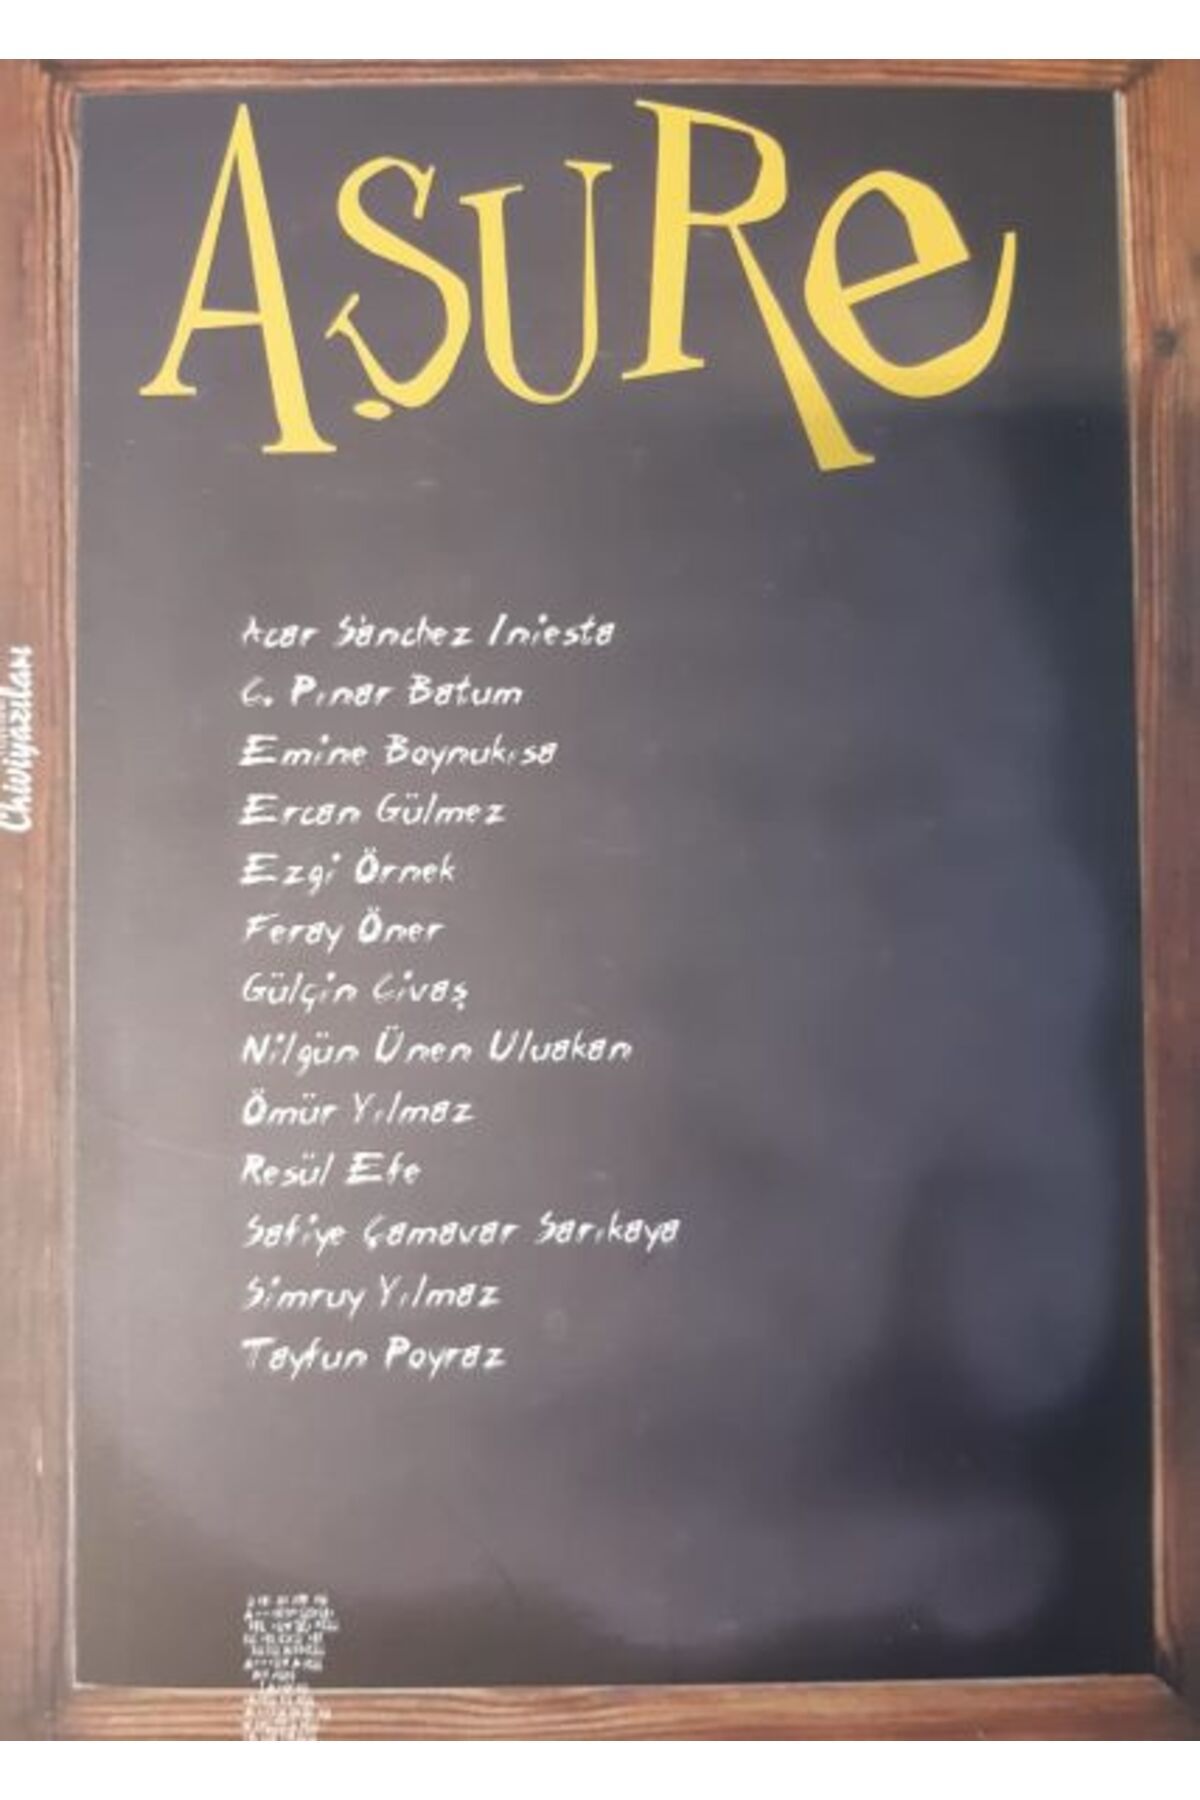 AŞURe
Acar Sànchez Iniesta
C. Pınar Batum
Emine Boynukısa
Ercan Gülmez
Ezgi Örnek
Feray Öner
Gülçin Civaş
Nilgün Ünen Uluakan
Ömür Yılmaz
Resül Efe
Safiye Çamavar Sarıkaya
Simruy Yılmaz
Tayfun Poyraz
Chiviyazıları